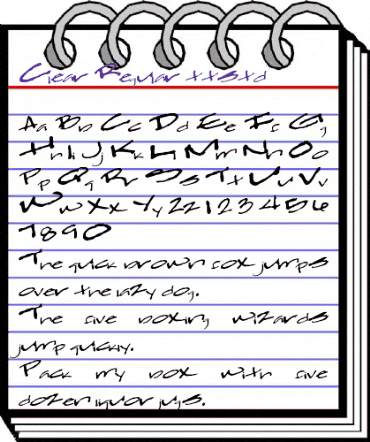 Clear Regular
Aa Bb Cc Dd Ee Ff Gg
Hh Ii Jj Kk Ll Mm Nn Oo
Pp Qq Rr Ss Tt Uu Vv
Ww Xx Yy Zz 1 2 3 4 5 6
7 8 9 0
The quick brown fox jumps
over the lazy dog.
The five boxing wizards
jump quickly.
Pack my box with five
dozen liquor jugs.